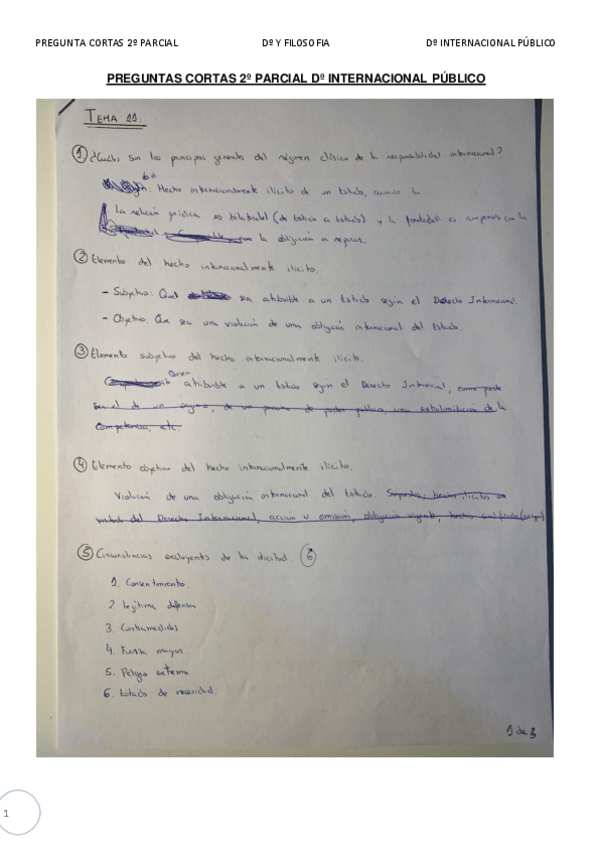 PREGUNTA CORTAS 2º PARCIAL Dº Y FILOSOFIA Dº INTERNACIONAL PÚBLICO
PREGUNTAS CORTAS 2º PARCIAL Dº INTERNACIONAL PÚBLICO
TEMA 11:
① ¿Cuáles son los principios generales del régimen clásico de la responsabilidad internacional?
Hecho internacionalmente ilícito de un Estado, cuando la
La relación jurídica es bilateral (de Estado a Estado) y la finalidad es
la obligación a reparar.
② Elementos del hecho internacionalmente ilícito.
- Subjetivo: Que sea atribuible a un Estado según el Derecho Internacional.
- Objetivo. Que sea una violación de una obligación internacional del Estado.
③ Elemento subjetivo del hecho internacionalmente ilícito.
atribuible a un Estado según el Derecho Internacional, como puede
ser el de un órgano, de una persona de poder público, una extralimitación de la
competencia, etc.
④ Elemento objetivo del hecho internacionalmente ilícito.
Violación de una obligación internacional del Estado.
del Derecho Internacional, acción u omisión, obligación vigente, hecho
⑤ Circunstancias excluyentes de la ilicitud. 6
1. Consentimiento.
2. Legítima defensa
3. Contramedidas
4. Fuerza mayor.
5. Peligro extremo
6. Estado de necesidad.
1 de 3
1